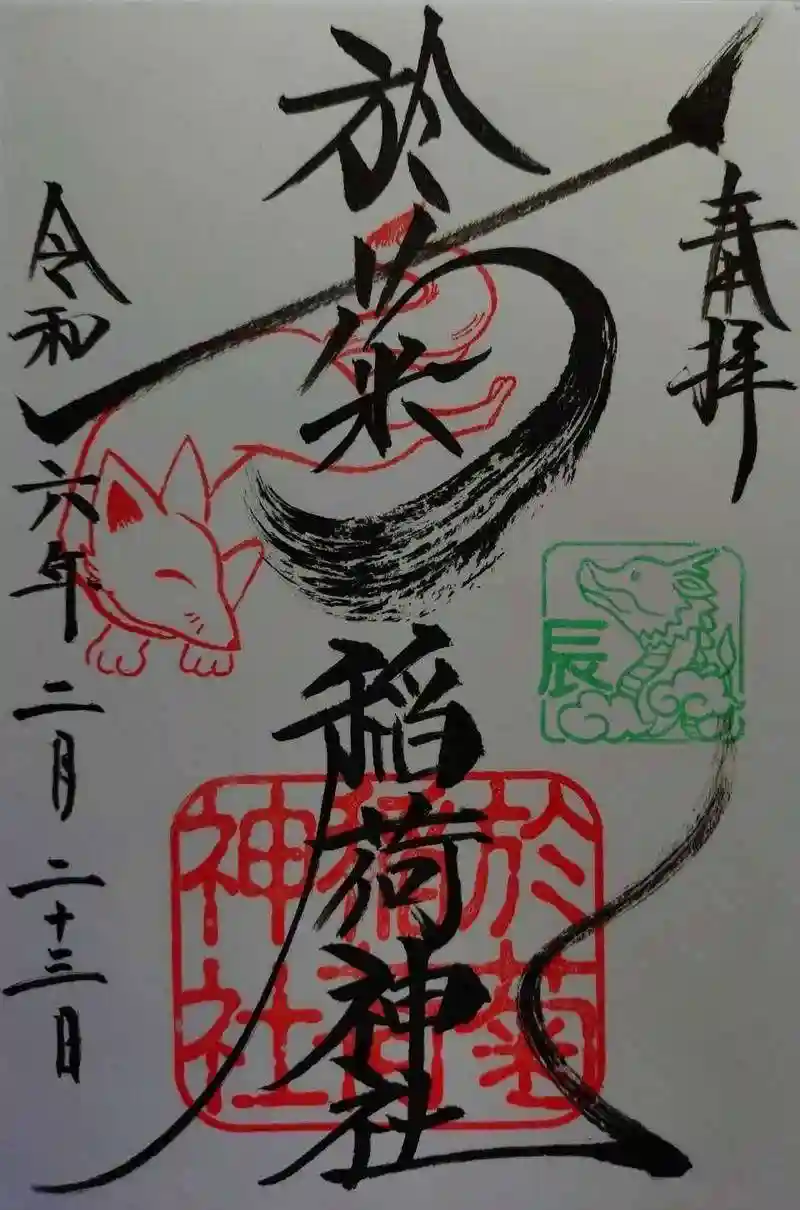 奉拝
於菊稲荷神社
令和六年二月二十三日
辰
於菊
稲荷
神社